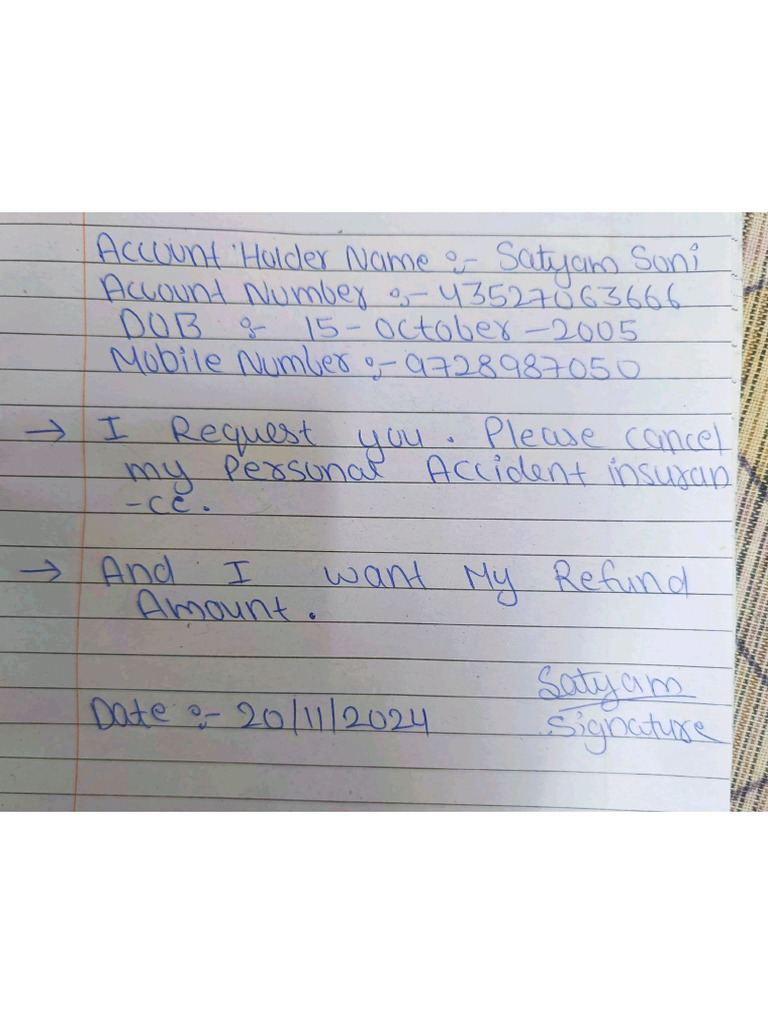 Account Holder Name :- Satyam Soni
Account Number :- 43527063666
DOB :- 15-October-2005
Mobile Number :- 9728987050
→ I Request you. Please cancel
my Personal Accident insuran
-ce.
→ And I want My Refund
Amount.
Satyam
Date :- 20/11/2024 Signature